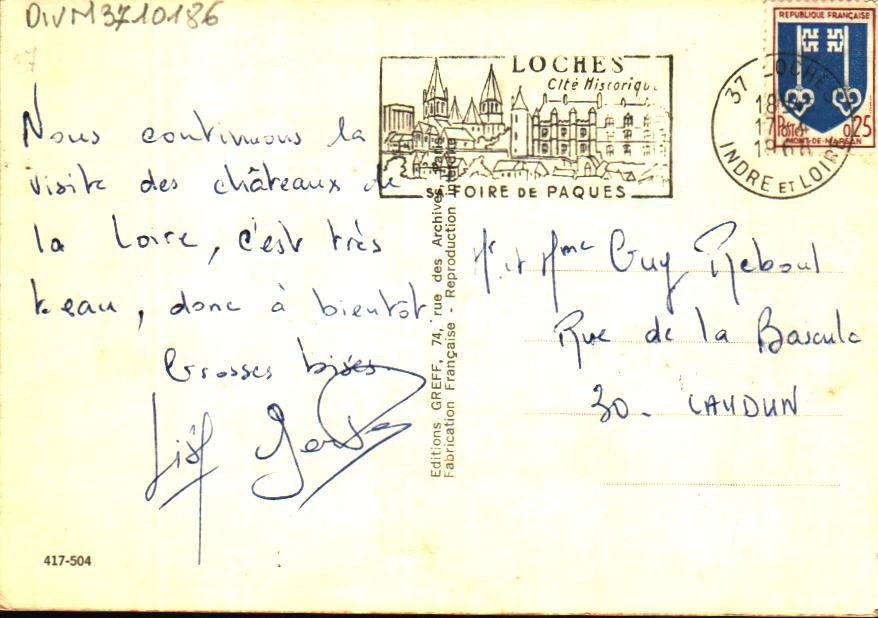 DIVM3710186
57
LOCHES
Cité Historique
SA FOIRE DE PAQUES
REPUBLIQUE FRANÇAISE
Postes 0,25
MONT-DE-MARSAN
37 LOCHES
18
17
19
INDRE ET LOIRE
Nous continuons la
visite des châteaux de
la Loire, c'est très
beau, donc à bientôt.
Grosses bises
Editions GREFF, 74, rue des Archives, Paris
Fabrication Française - Reproduction Interdite
Mr et Mme Guy Reboul
Rue de la Bascule
30 - LAUDUN
417-504